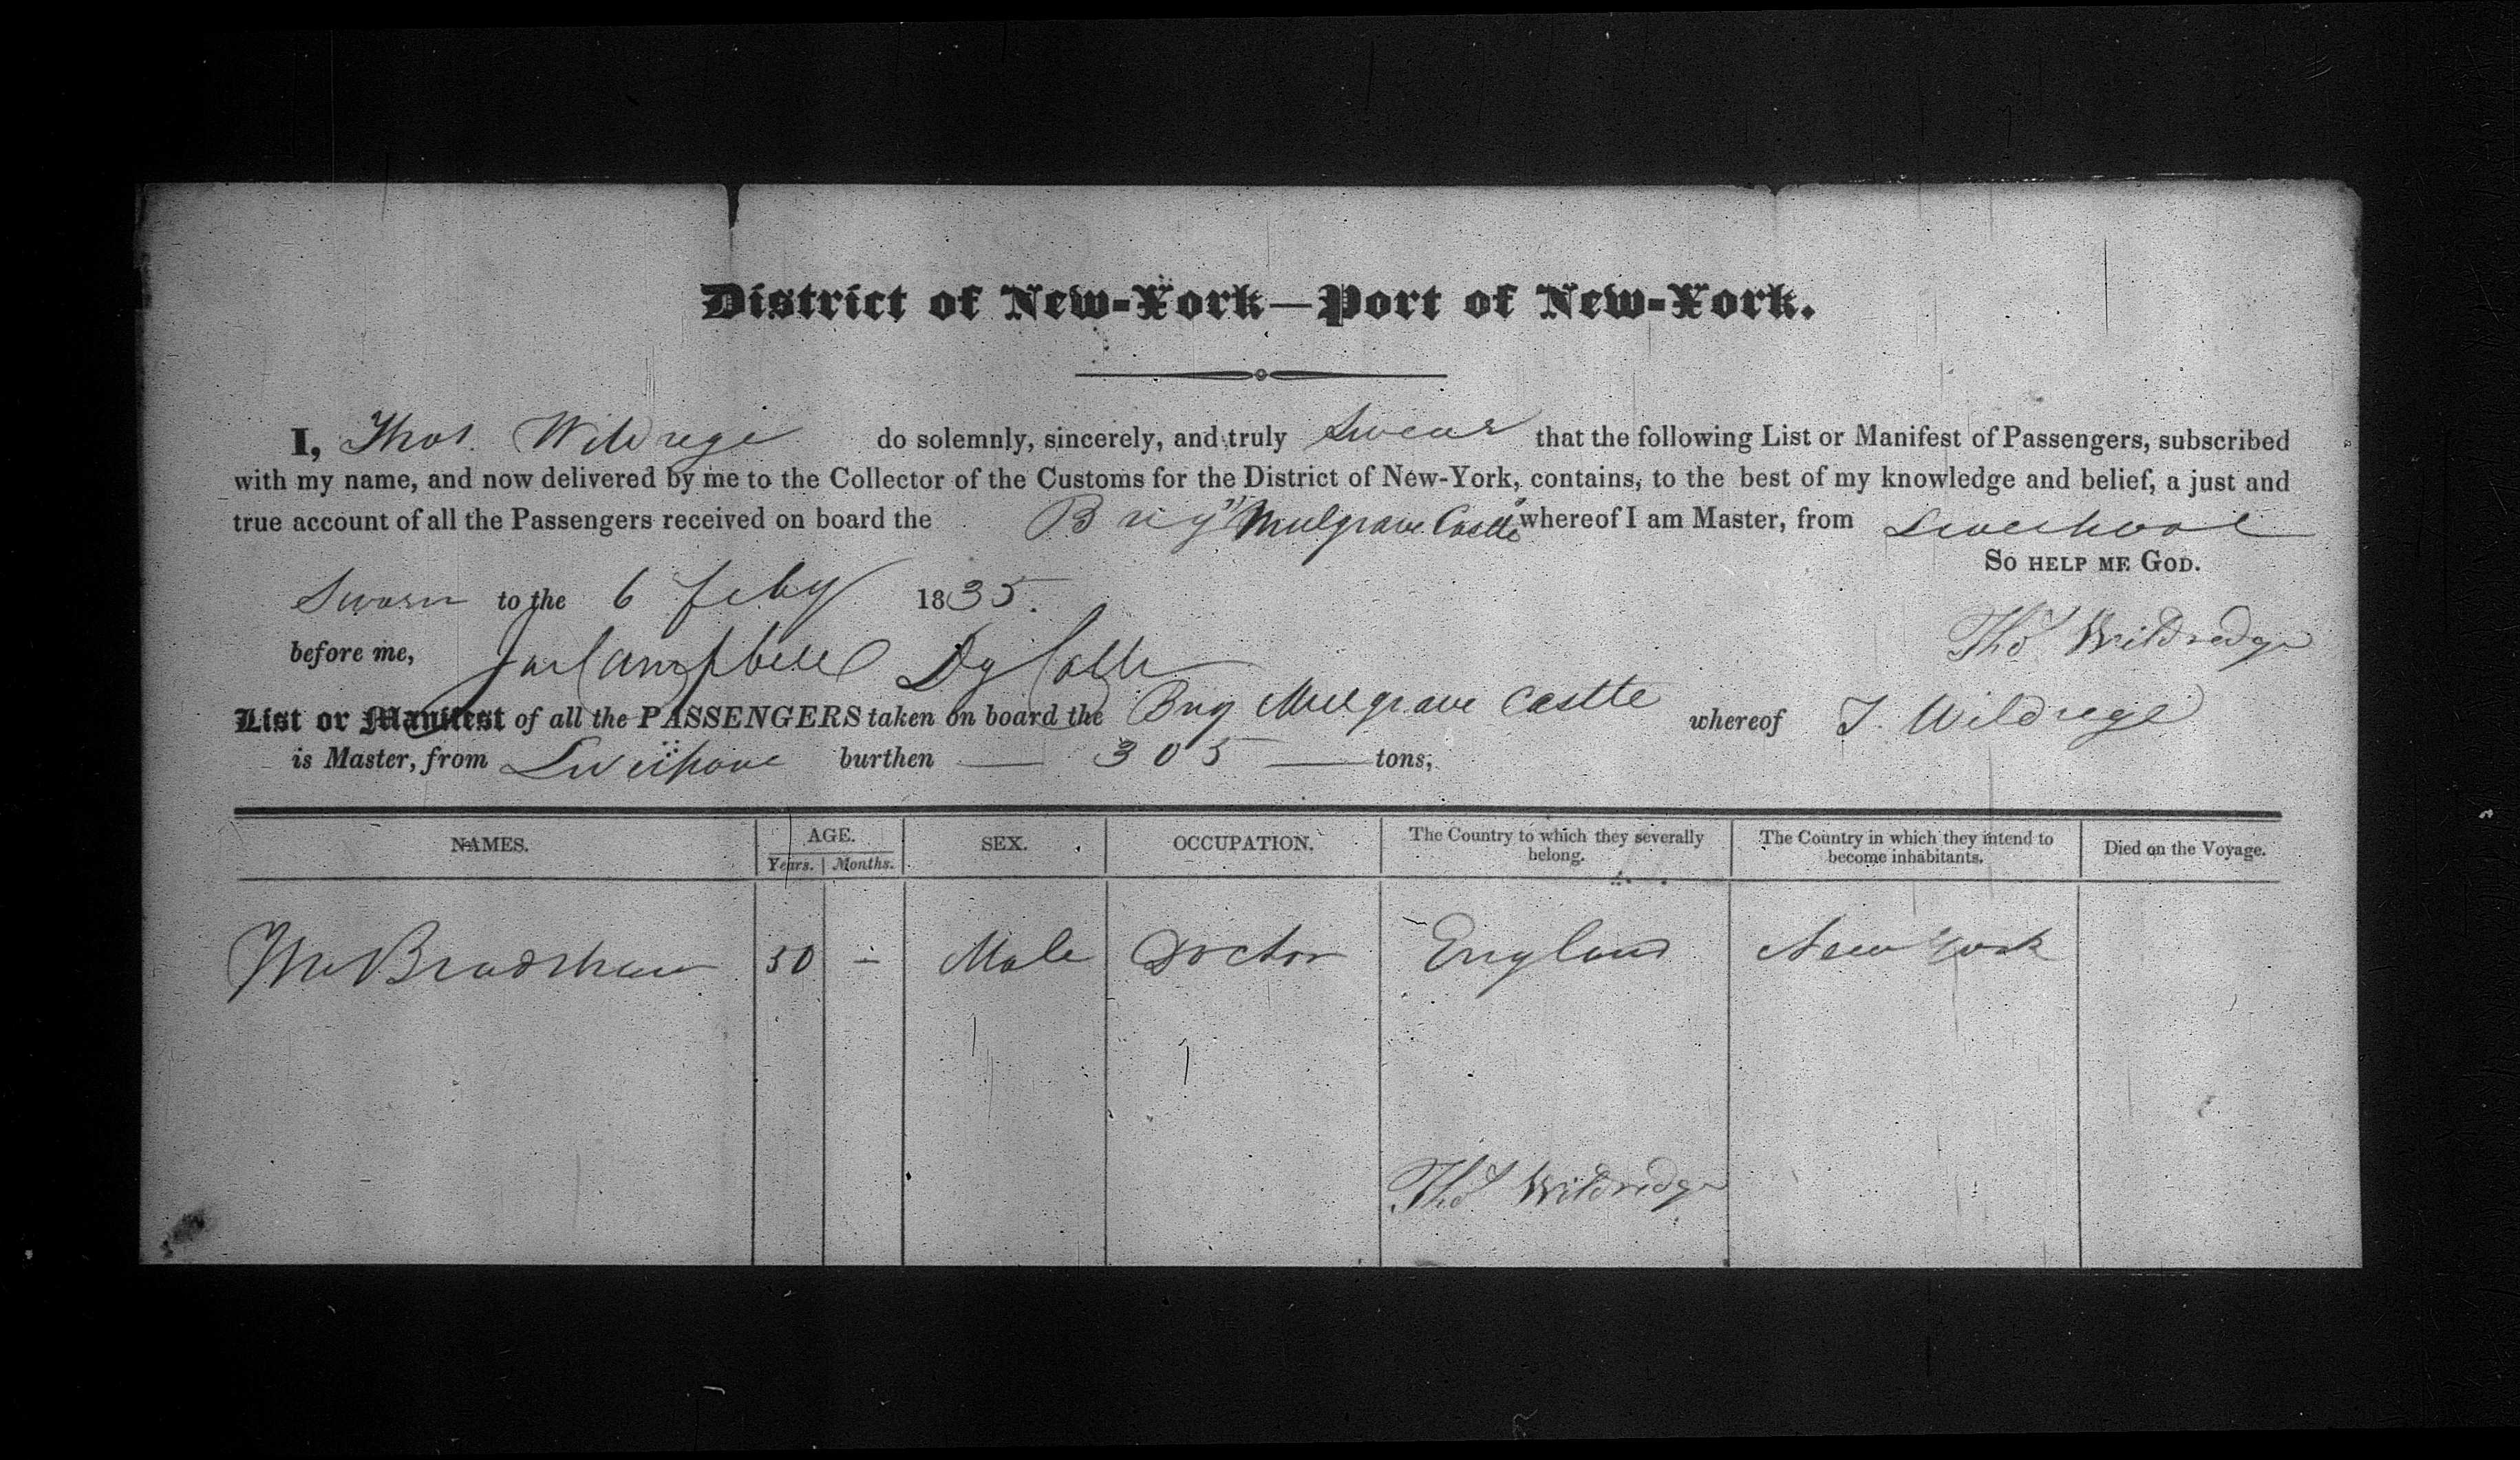 District of New-York—Port of New-York.
I, Thos. Wildrege do solemnly, sincerely, and truly Swear that the following List or Manifest of Passengers, subscribed
with my name, and now delivered by me to the Collector of the Customs for the District of New-York, contains, to the best of my knowledge and belief, a just and
true account of all the Passengers received on board the Brig "Mulgrave Castle" whereof I am Master, from Liverpool
So help me God.
Sworn to the 6 Feby 1835.
Thos Wildredge
before me, Jas Campbell Dy Collr
List or Manifest of all the PASSENGERS taken on board the Brig Mulgrave Castle whereof T. Wildrege
is Master, from Liverpool burthen — 305 — tons,
NAMES. AGE. Years. Months. SEX. OCCUPATION. The Country to which they severally belong. The Country in which they intend to become inhabitants. Died on the Voyage.
Mr Bradshaw 50 – Male Doctor England New York
Thos Wildridge